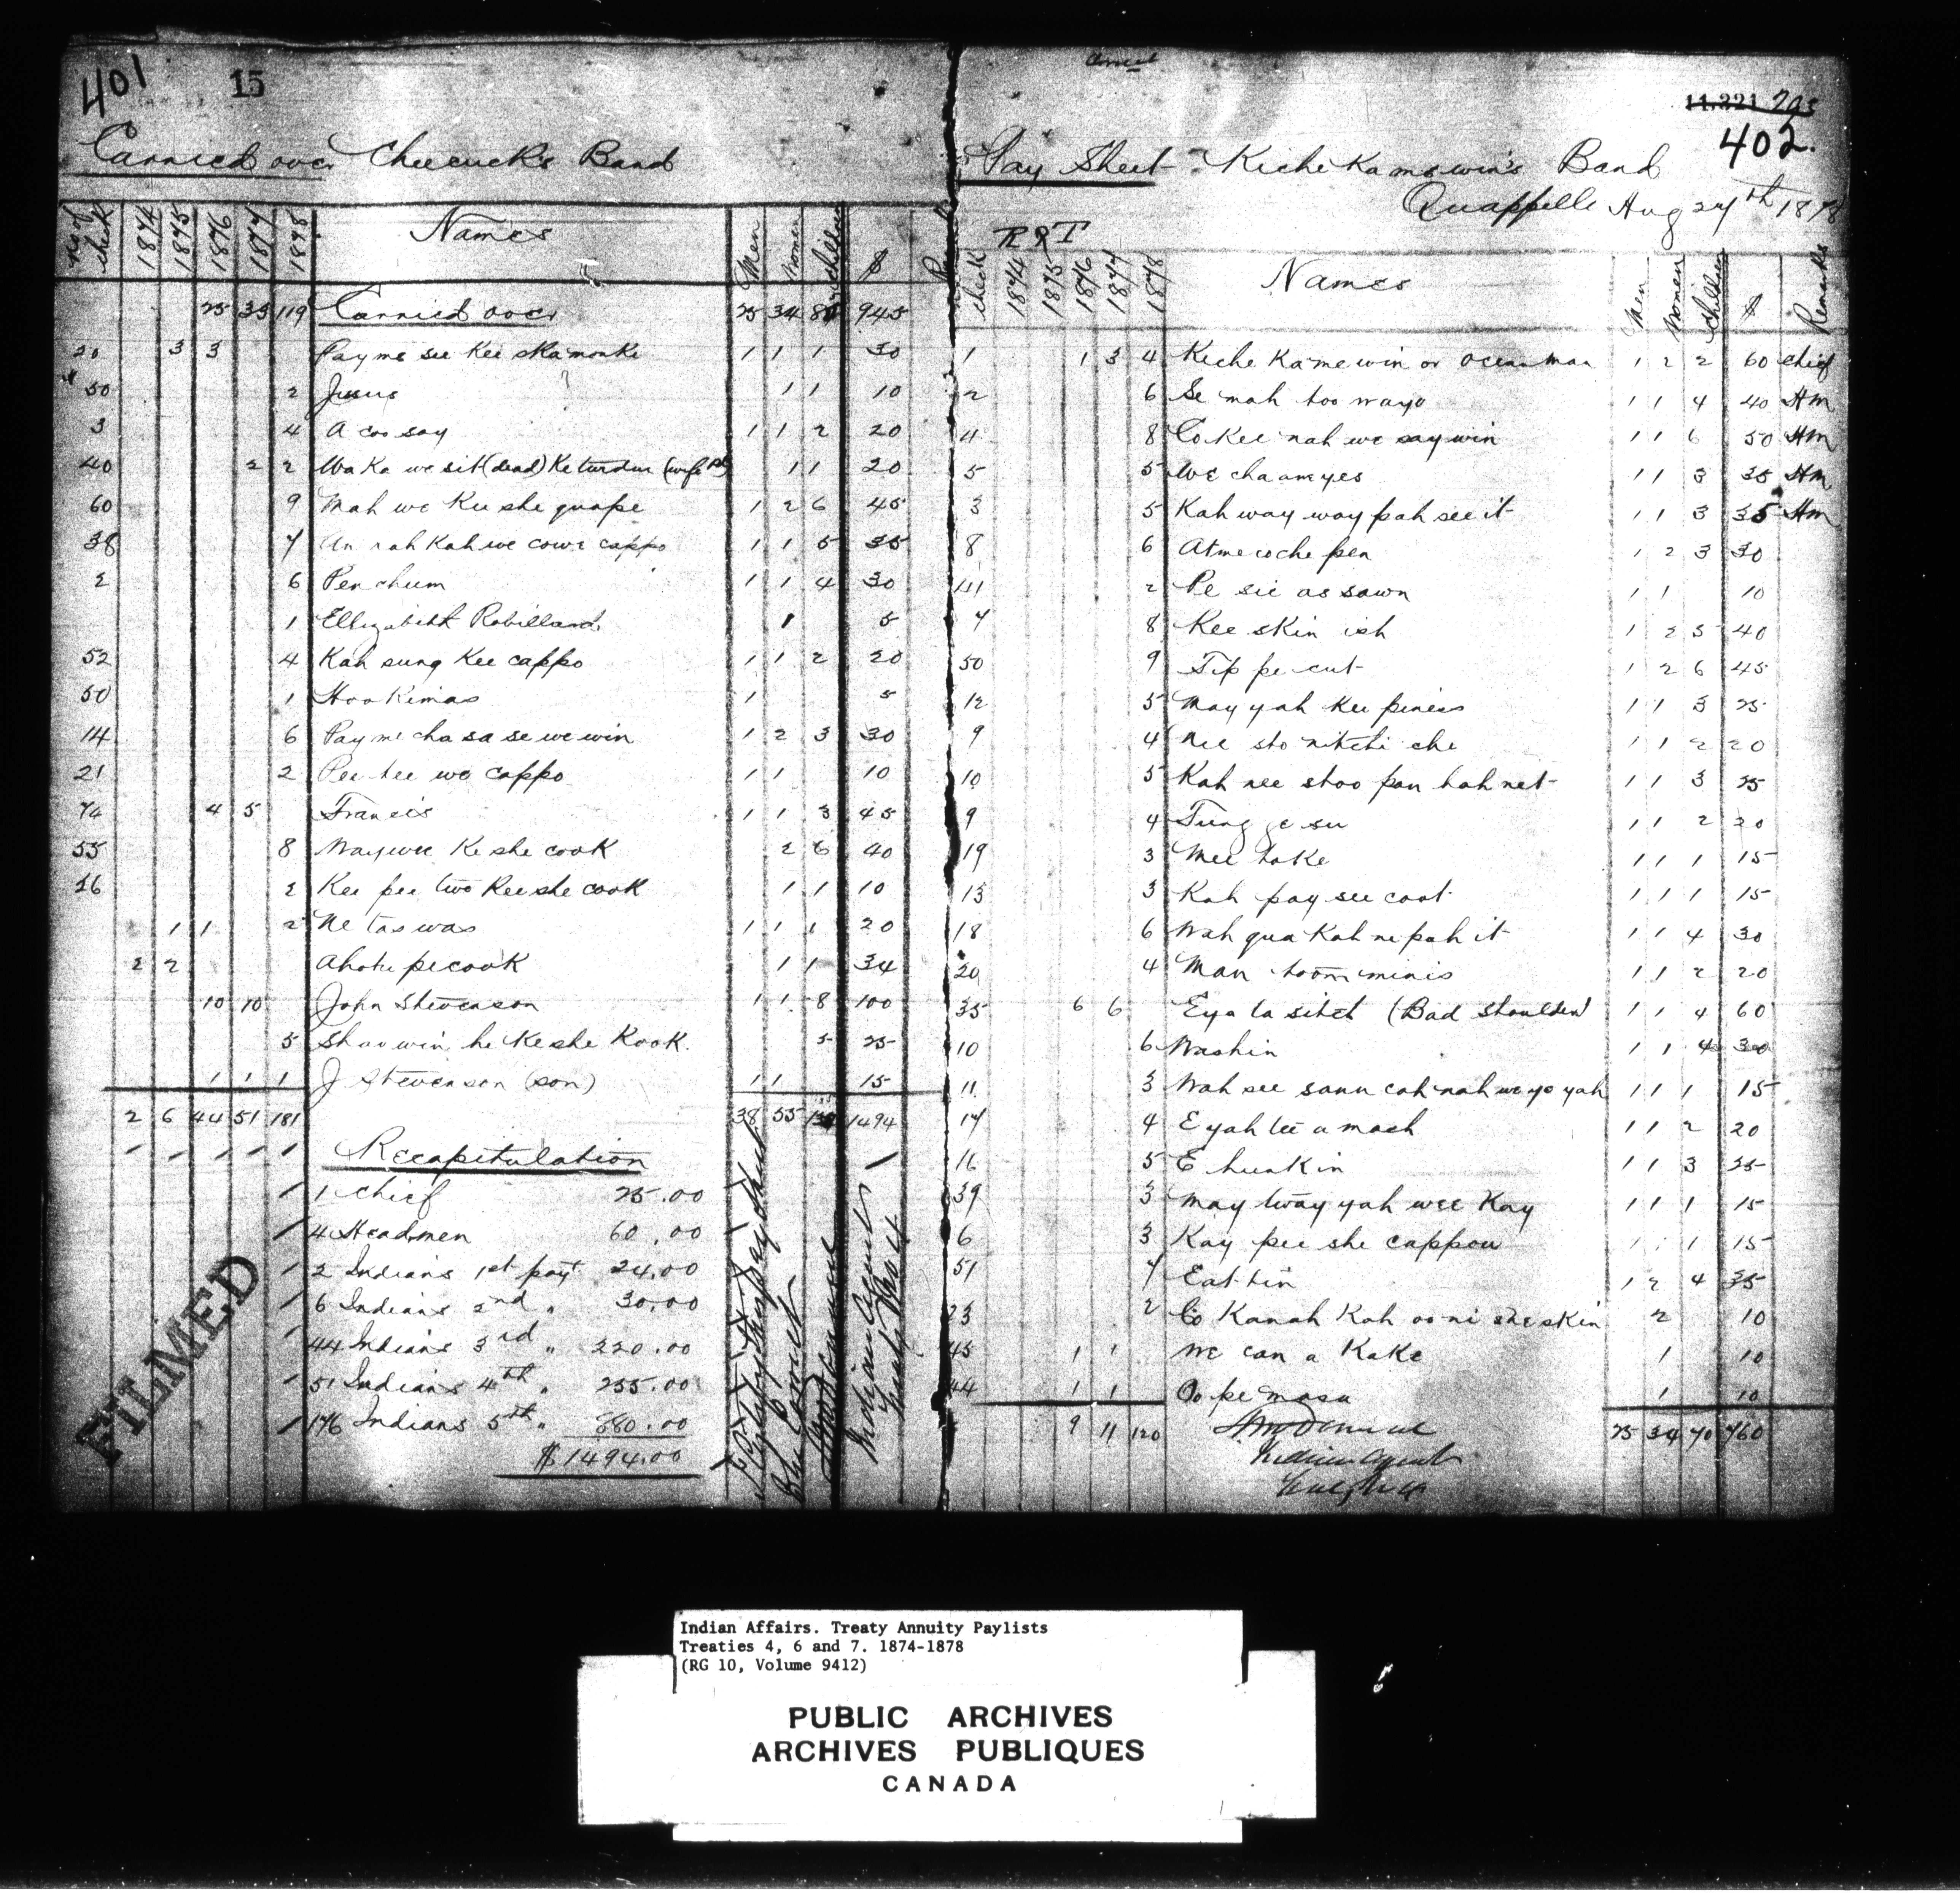 401 15
Carried over Cheecuck's Band
No of check 1874 1875 1876 1877 1878 Names Men Women Children $
25 35 119 Carried over 25 34 945
20 3 3 Pay me see Kee ska monke 1 1 1 30
50 2 Jusus 1 1 10
3 4 A coo say 1 1 2 20
40 2 2 Wa Ka we sit (dead) (wife 1 1 20
60 9 Mah we Kee she quape 1 2 6 45
38 7 An nah Kah we cowe cappo 1 1 5 35
2 6 Pen chum 1 1 4 30
1 Ellizabith Robilland 1 5
52 4 Kah sung Kee cappo 1 1 2 20
50 1 Hoo Kimas 1 5
14 6 Pay me cha sa se we win 1 2 3 30
21 2 Pee tee we cappo 1 1 10
74 4 5 Francis 1 1 3 45
55 8 Way wee Ke she cook 2 6 40
26 2 Kee pee two Kee she cook 1 1 10
1 1 2 Ne tas was 1 1 1 20
2 2 Ahote pe cook 1 1 34
10 10 John Stevenson 1 1 8 100
5 Shaw win he Ke she Kook 5 25
1 1 1 J Stevenson (son) 1 1 15
2 6 44 51 181 38 55 1494
Recapitulation
1 Chief 25.00
4 Headmen 60.00
2 Indians 1st payt 24.00
6 Indians 2nd " 30.00
44 Indians 3rd " 220.00
51 Indians 4th " 255.00
176 Indians 5th " 880.00
$1494.00
Indian Agent
FILMED
11.221
402.
Pay Sheet Kiche Kamewin's Band
Quappelle Aug 27th 1878
check 1874 1875 1876 1877 1878 Names Men Women Children $ Remarks
1 1 3 4 Kiche Kamewin or Ocean man 1 2 2 60 Chief
2 6 Se mah too wayo 1 1 4 40 Hm
4 8 Co Kee nah we say win 1 1 6 50 Hm
5 5 We cha am yes 1 1 3 35 Hm
3 5 Kah way way pah see it 1 1 3 35 Hm
8 6 Atme coche pen 1 2 3 30
41 2 Pe sic as sawn 1 1 10
7 8 Kee skin ish 1 2 5 40
50 9 Tip pe cut 1 2 6 45
12 5 May yah kee piness 1 1 3 25
9 4 Nee sto nitchi che 1 1 2 20
10 5 Kah nee stoo pan hah net 1 1 3 25
9 4 Tung ge su 1 1 2 20
19 3 Mee take 1 1 1 15
13 3 Kah pay see coot 1 1 1 15
18 6 Wah qua Kah ne pah it 1 1 4 30
20 4 Man toom minis 1 1 2 20
35 6 6 Eya la sitch (Bad Shoulder) 1 1 4 60
10 6 Washin 1 1 4 30
11 3 Wah see sann cah nah we yo yah 1 1 1 15
17 4 E yah tee a mach 1 1 2 20
16 5 E hunkin 1 1 3 25
39 3 May tway yah wee Kay 1 1 1 15
6 3 Kay pee she cappou 1 1 1 15
51 7 Eat tin 1 2 4 35
23 2 Co Kanah Kah oo ni she skin 2 10
45 1 1 We can a Kake 1 10
44 1 1 Oo pe masu 1 10
9 11 120 25 34 70 760
Indian Agent
Indian Affairs. Treaty Annuity Paylists
Treaties 4, 6 and 7. 1874-1878
(RG 10, Volume 9412)
PUBLIC ARCHIVES
ARCHIVES PUBLIQUES
CANADA